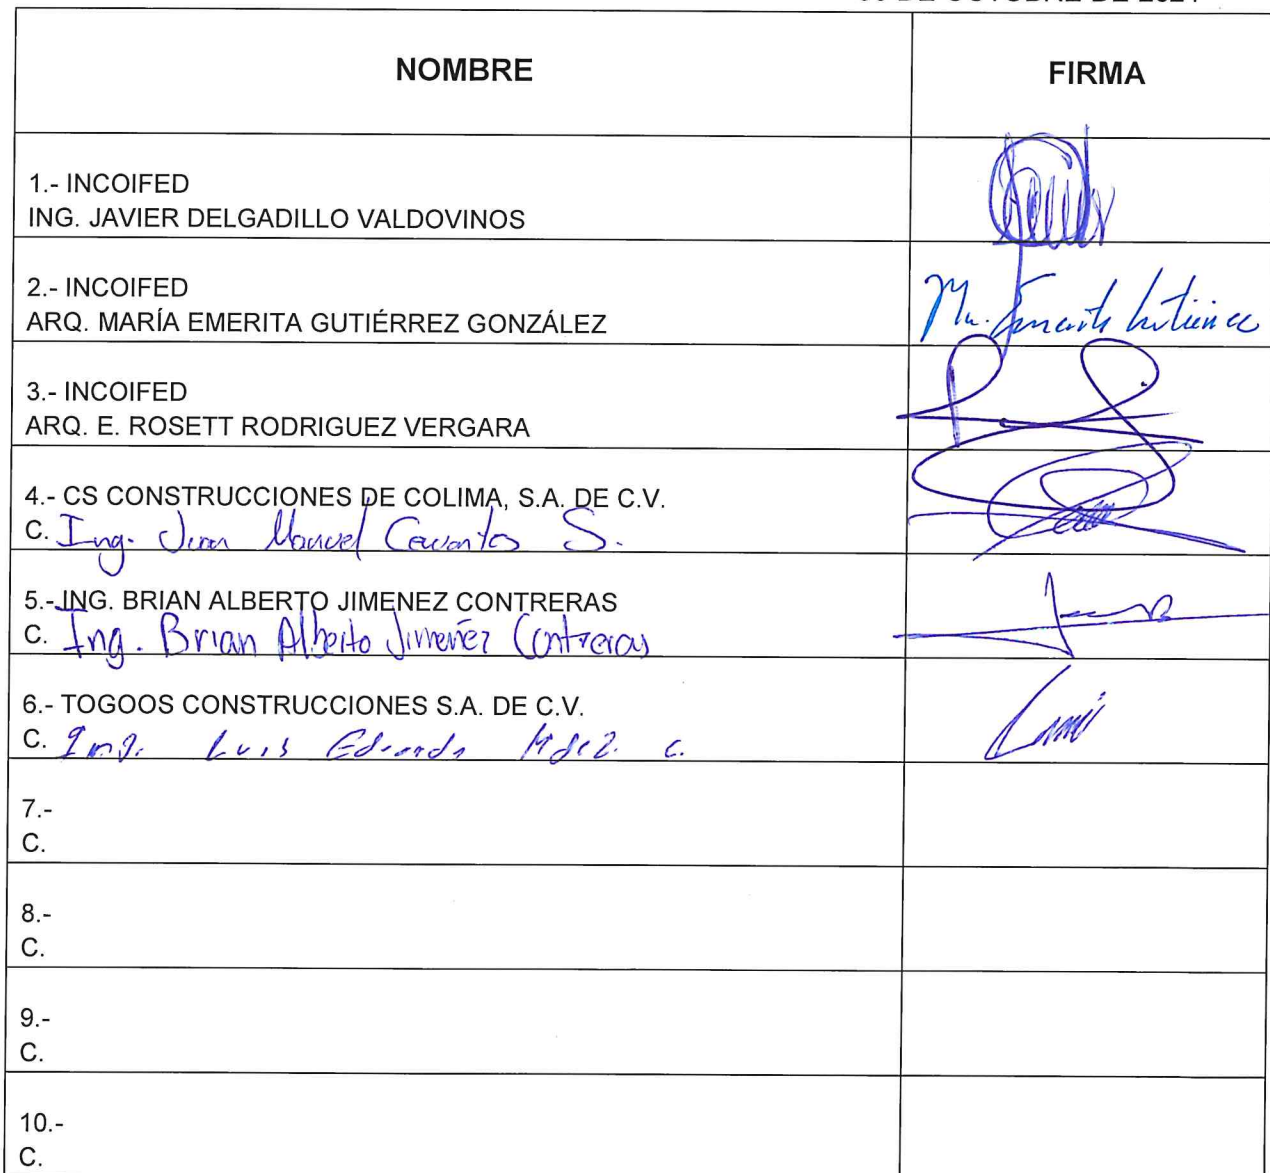 DE OCTUBRE DE 2024
NOMBRE
FIRMA
1.- INCOIFED
ING. JAVIER DELGADILLO VALDOVINOS
2.- INCOIFED
ARQ. MARÍA EMERITA GUTIÉRREZ GONZÁLEZ
3.- INCOIFED
ARQ. E. ROSETT RODRIGUEZ VERGARA
4.- CS CONSTRUCCIONES DE COLIMA, S.A. DE C.V.
C. Ing. Juan Manuel S.
5.- ING. BRIAN ALBERTO JIMENEZ CONTRERAS
C. Ing. Brian Alberto Jimenez Contreras
6.- TOGOOS CONSTRUCCIONES S.A. DE C.V.
C. Ing. Luis Eduardo c.
7.-
C.
8.-
C.
9.-
C.
10.-
C.